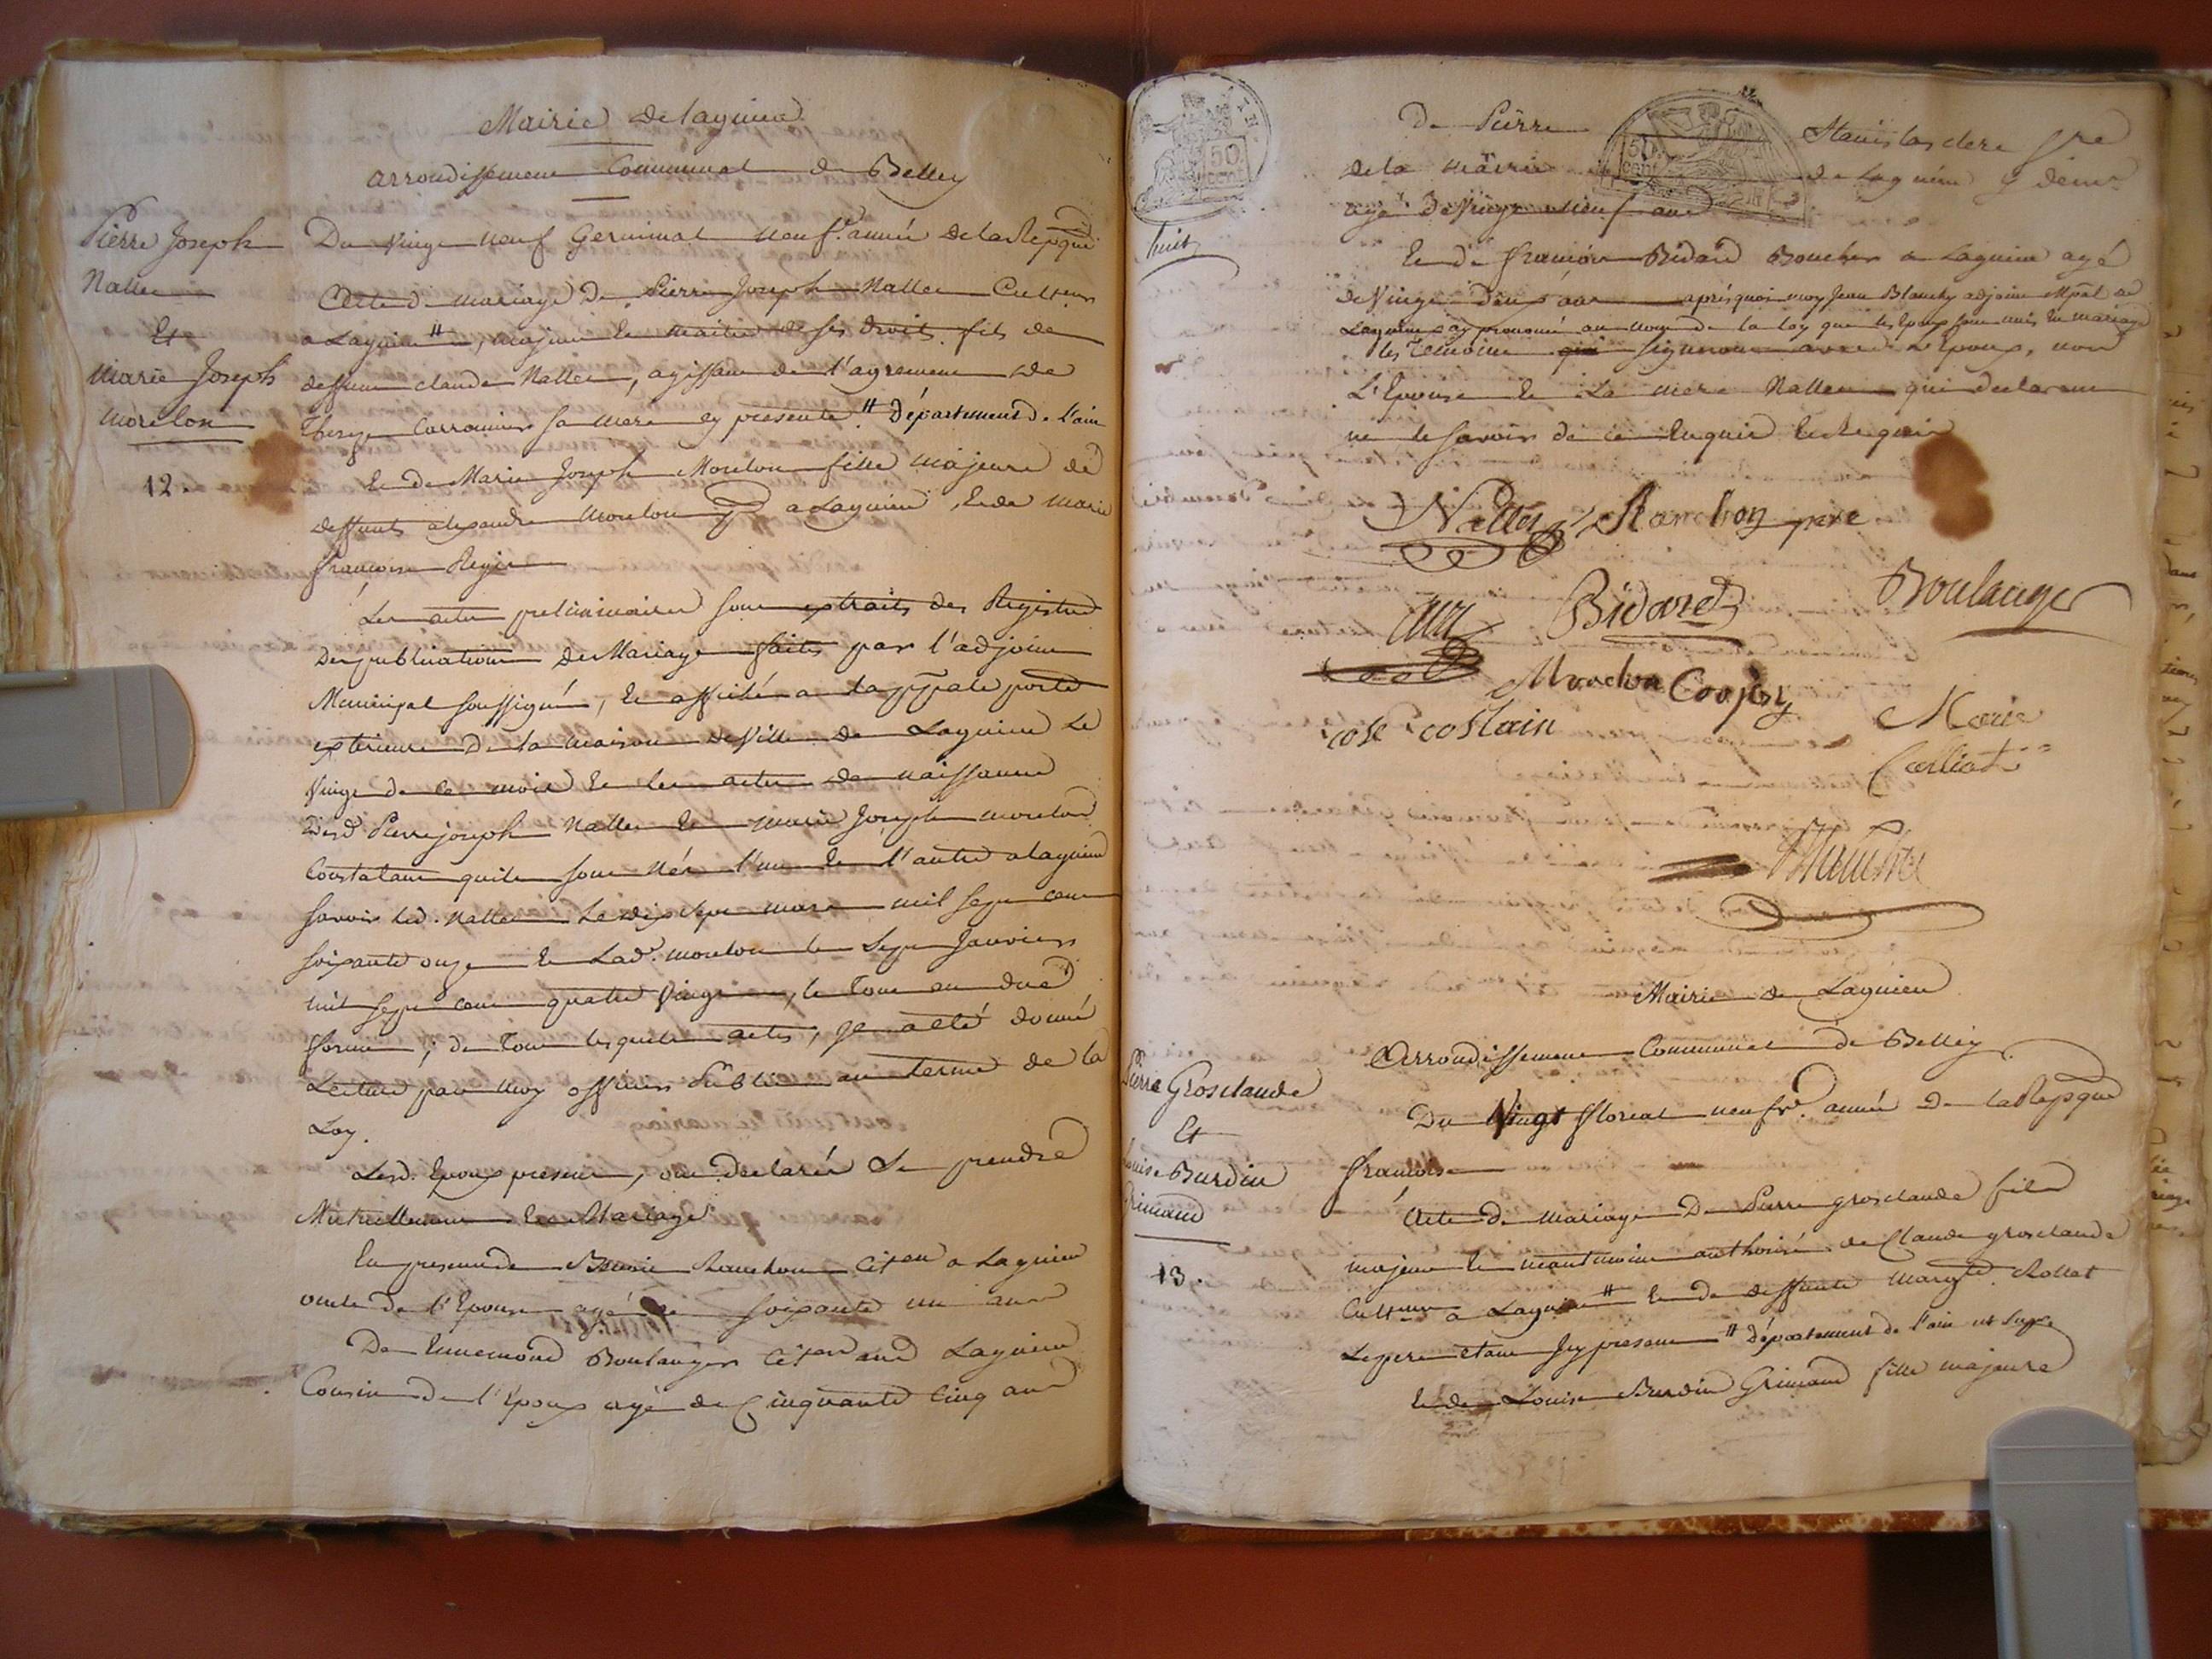 Mairie de lagnieu
arrondissement Communal de Belley
Pierre Joseph
Nallee
Et
Marie Joseph
Morelon
12.
Du Vingt neuf Germinal neufe. année de la Repque
Acte de mariage de Pierre Joseph Nallee Cultteur
a Lagnieu #, majeur et maitre de ses droits fils de
deffunt claude Nallee, agissant de l'agrement de
sa mere cy presente # Département de l'ain
Et de Marie Joseph Morelon fille majeure de
deffunts alexandre Morelon a Lagnieu, et de marie
françoise
Les actes preliminaires sont extraits des Registres
des publications de Mariage faits par l'adjoint
Municipal soussigné, et affiché a la ppale porte
exterieure de la maison de Ville de Lagnieu le
Vingt de ce mois et les actes de naissance
desd Pierre joseph Nallee et marie Joseph morelon
Constatant quils sont nés l'un et l'autre a lagnieu
savoir led. Nallee le dix sept mars mil sept cent
soixante onze et Lade. morelon le sept Janvier
mil sept cent quatre Vingt, le tout en due
forme, de tous lesquels actes, il a été donné
Lecture par moy officier Public au terme de la
Loy.
Lesd. Epoux presents, ont declarés se prendre
Mutuellement en Mariage
En presence de Ranchon a Lagnieu
oncle de l'Epouse agé de soixante un ans
De Ennemond Boulanger Lagnieu
Cousin de l'Epoux agé de Cinquante Cinq ans
50
cent
huit
De Pierre Stanislas clere
de la mairie de Lagnieu y demt
agé de Vingt neuf ans
Et de françois Bidard Boucher a Lagnieu agé
de Vingt deux ans après quoi moy Jean Blanchy adjoint Mpal de
Lagnieu ay prononcé au nom de la loy que les Epoux sont unis en mariage
les Temoins signeront avec L'Epoux, non
L'Epouse et La mere Nallee qui declarent
ne le savoir de ce Enquis et Requis
50
cent
Nallee Ranchon pere
Bidard Boulanger
costain Marie
Mairie de Lagnieu
Arrondissement Communal de Belley
Pierre Grosclaude
Et
Louise Burdin
Grimaud
13.
Du Vingt floreal neufe. année de la Repque
françoise
Acte de mariage De Pierre grosclaude fils
majeur et neantmoins authorisé de Claude grosclaude
Cultteur a Lagnieu # et de deffunte margte Rollet
Le pere etant Icy present # Département de l'ain ut supra
Et de Louise Burdin Grimaud fille majeure